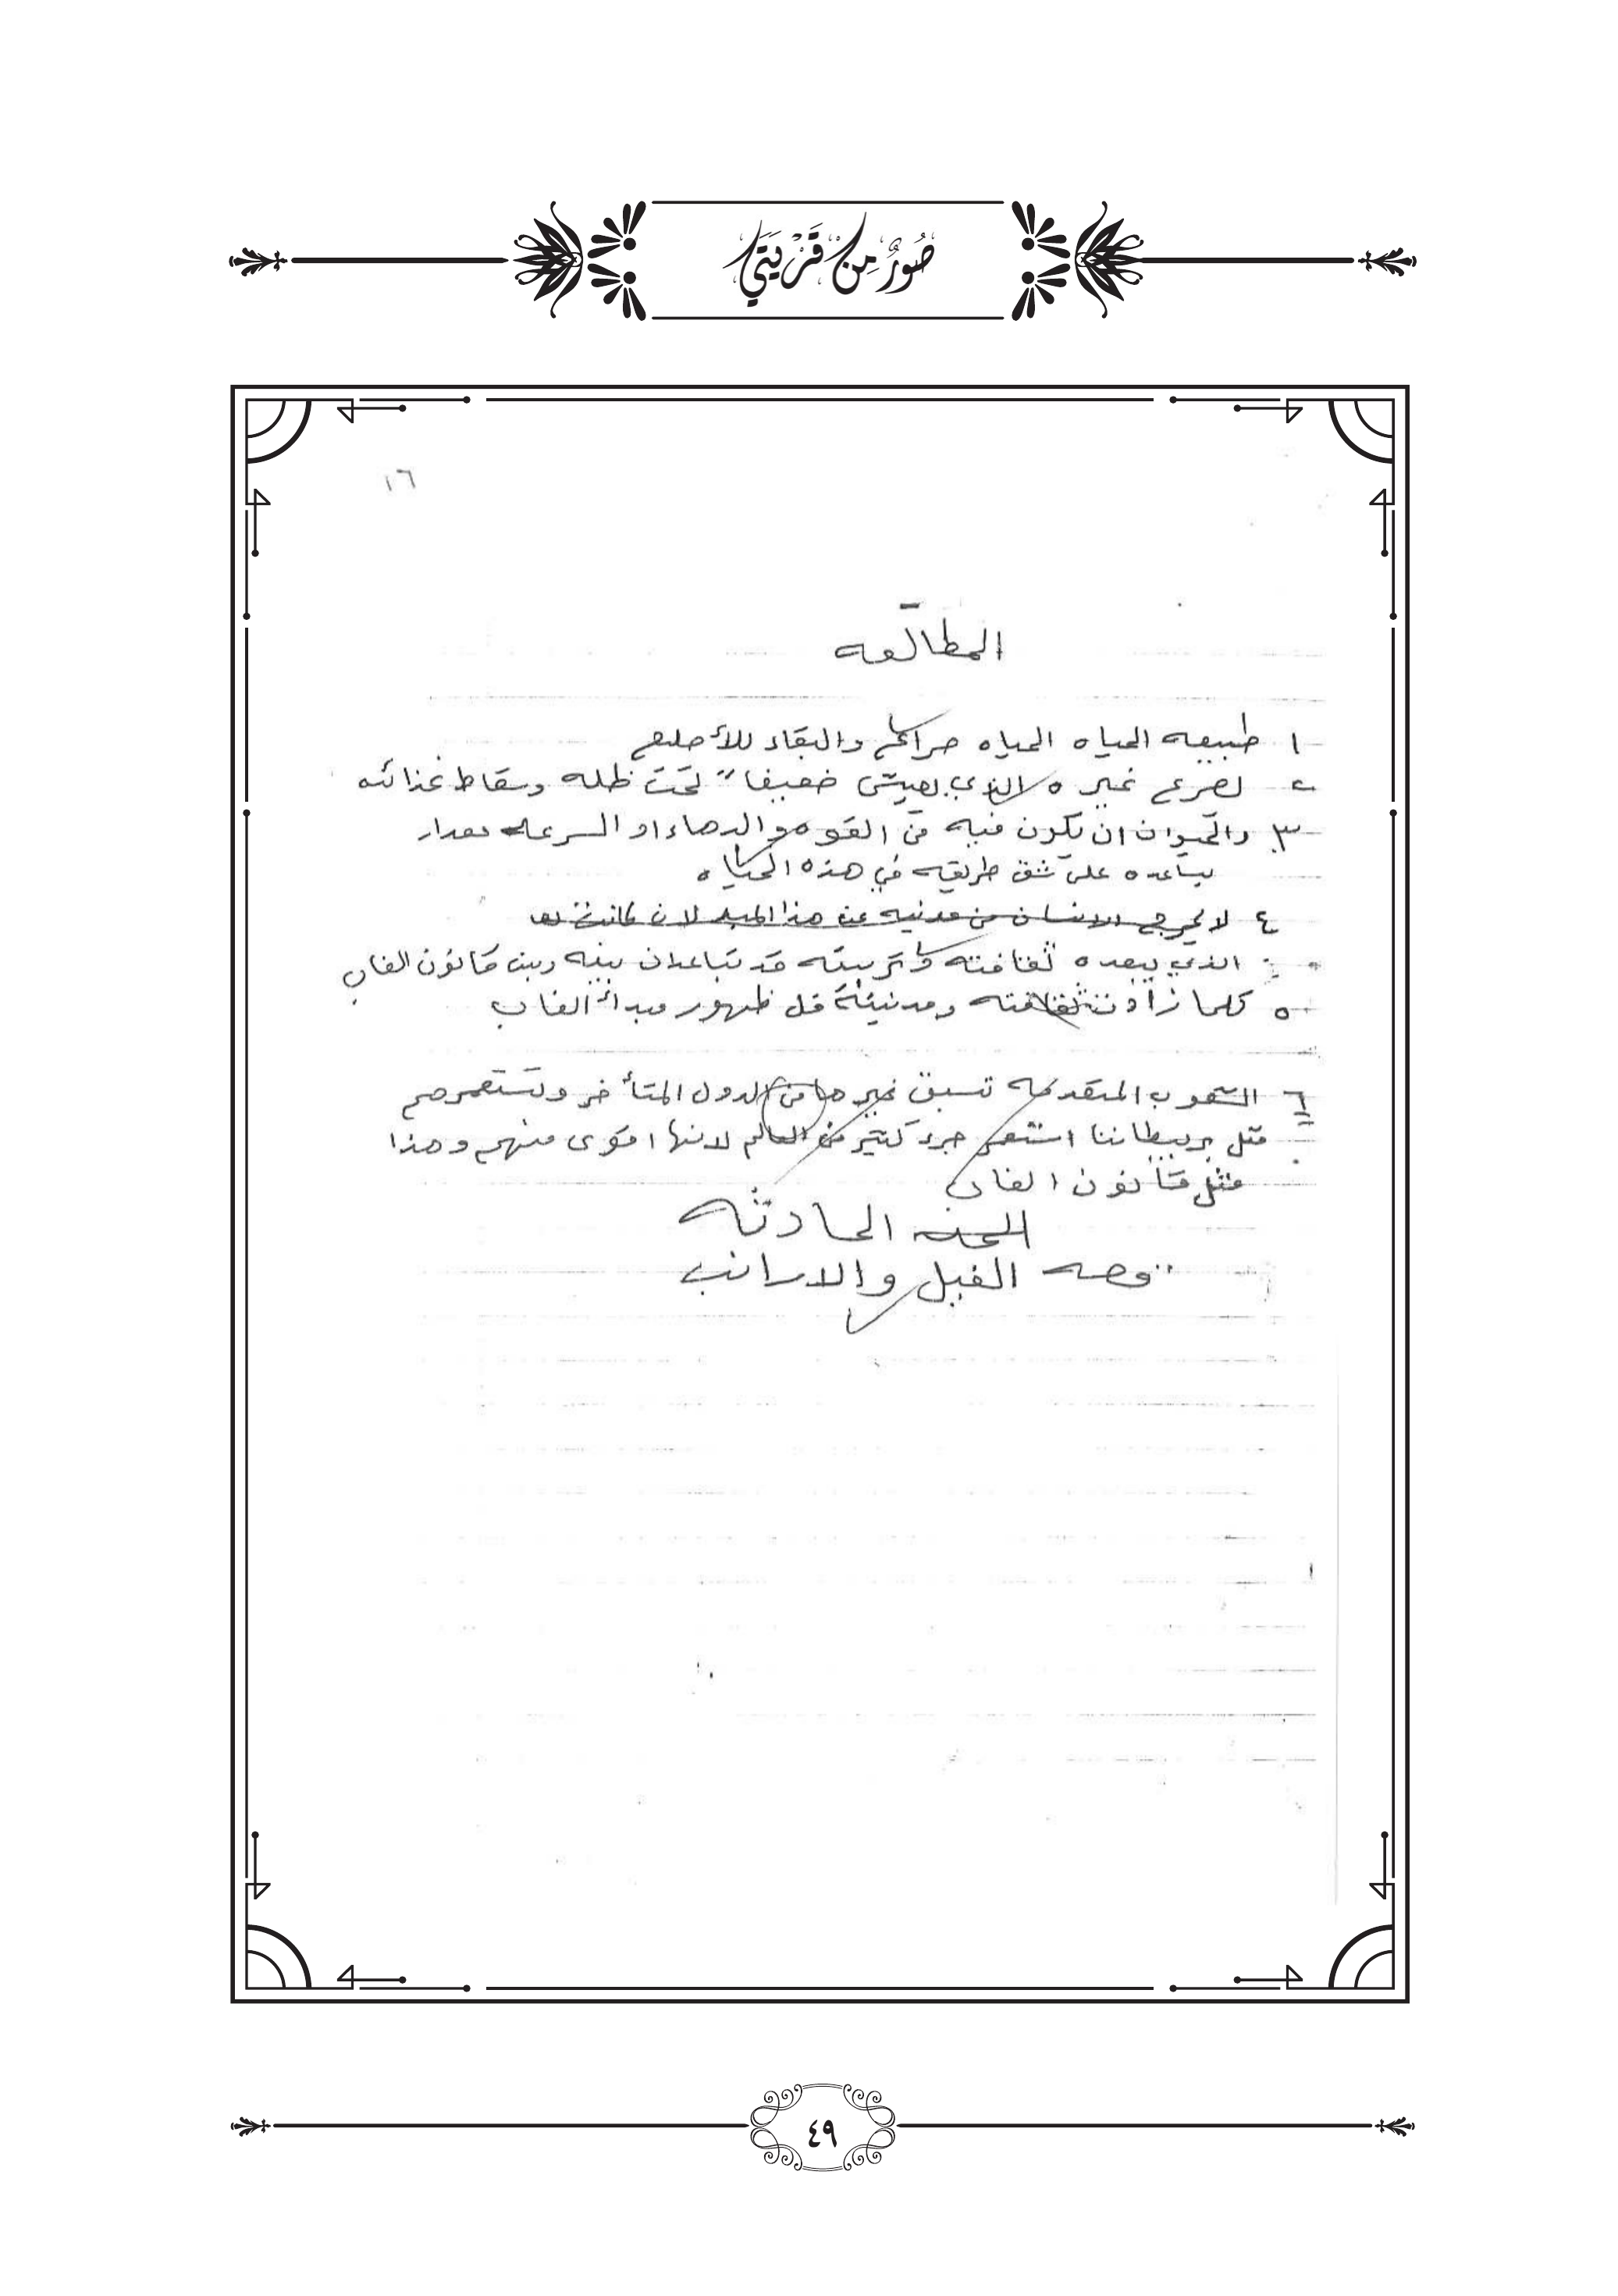 صُورٌ مِنْ قَرْيَتِي
١٦
المطالعه
١ طبيعه الحياه الحياه صراع والبقاء للأصلح
٢ لصرع غيره الذي يعيش ضعيفا" تحت ظله وسقاط غذائه
٣ والحيوان ان يكون فيه من القوه والدهاء او السرعه مقدار
يساعده على شق طريقه في هذه الحياه
٤ لا يخرج الانسان من مدنيه عن هذا المبد لان
الذي يبعده ثقافته وتربيته قد تباعدان بينه وبين قانون الغاب
٥ كلما زادت ثقافته ومدنيته قل ظهور مبدأ الغاب
٦ الشعوب المتقدمه تسبق غيرها من الدول المتأخر وتستعمرهم
مثل بريطاننا استعمر جزء كثير من العالم لانها اقوى منهم وهذا
مثل قانون الغاب
الحادثه
قصه الفيل والارانب
٤٩